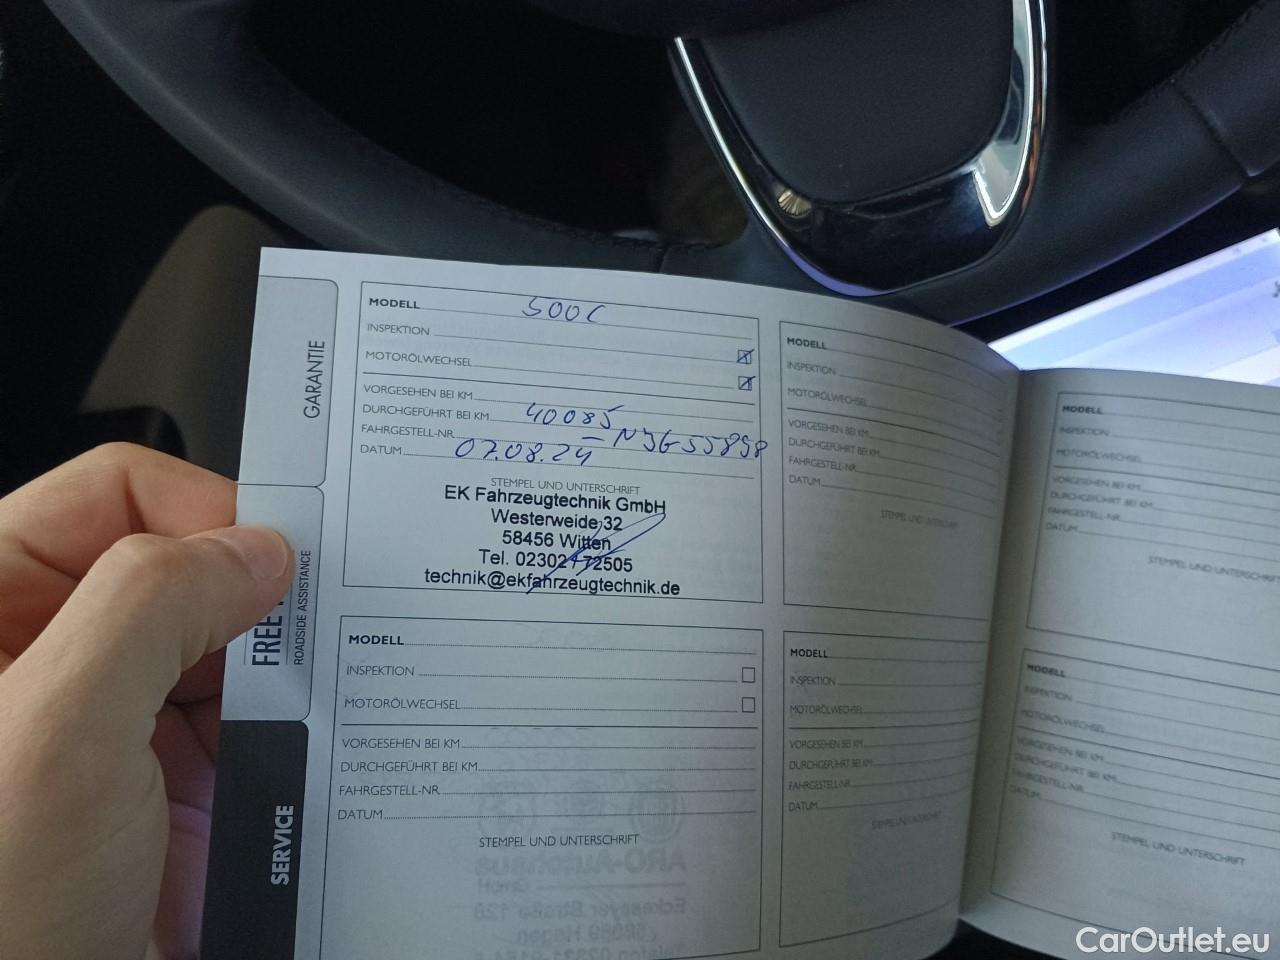 GARANTIE
FREE
ROADSIDE ASSISTANCE
SERVICE
MODELL 500C
INSPEKTION
MOTORÖLWECHSEL
VORGESEHEN BEI KM
DURCHGEFÜHRT BEI KM 40085
FAHRGESTELL-NR. – NJG55898
DATUM 07.08.24
STEMPEL UND UNTERSCHRIFT
EK Fahrzeugtechnik GmbH
Westerweide 32
58456 Witten
Tel. 02302472505
technik@ekfahrzeugtechnik.de
MODELL
INSPEKTION
MOTORÖLWECHSEL
VORGESEHEN BEI KM
DURCHGEFÜHRT BEI KM
FAHRGESTELL-NR.
DATUM
STEMPEL UND UNTERSCHRIFT
MODELL
INSPEKTION
MOTORÖLWECHSEL
VORGESEHEN BEI KM
DURCHGEFÜHRT BEI KM
FAHRGESTELL-NR.
DATUM
STEMPEL UND UNTERSCHRIFT
MODELL
INSPEKTION
MOTORÖLWECHSEL
VORGESEHEN BEI KM
DURCHGEFÜHRT BEI KM
FAHRGESTELL-NR.
DATUM
STEMPEL UND UNTERSCHRIFT
MODELL
INSPEKTION
MOTORÖLWECHSEL
VORGESEHEN BEI KM
DURCHGEFÜHRT BEI KM
FAHRGESTELL-NR.
DATUM
STEMPEL UND UNTERSCHRIFT
MODELL
INSPEKTION
MOTORÖLWECHSEL
VORGESEHEN BEI KM
DURCHGEFÜHRT BEI KM
FAHRGESTELL-NR.
DATUM
STEMPEL UND UNTERSCHRIFT
CarOutlet.eu